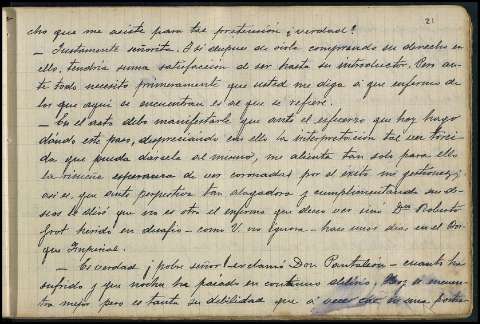 21
cho que me asiste para tal pretensión ¿verdad?
— Justamente señorita. Y si despues de oirla comprendo su derecho en
ello, tendria suma satisfacción de ser hasta su introductor. Pero an-
te todo necesito primeramente que usted me diga á que enfermo de
los que aqui se encuentran es al que se refiere.
— En el acto debo manifestarle que ante el esfuerzo que hoy hago
dando este paso, despreciando con ello la interpretación tal vez torci-
da que pueda darsele al mismo, me alienta tan solo para ello
la risueña esperanza de ver coronadas por el éxito mi gestiones; y
asi es, que ante perspectiva tan alagadora y cumplimentando sus de-
seos le diré que no es otro el enfermo que deseo ver sino Dn Roberto
Groot herido en desafio — como V. no ignora — hace unos dias en el Bos-
que Imperial.
— Es verdad ¡pobre señor! — exclamó Don Pantaleón — cuanto ha
sufrido y que noches ha pasado en continuo delirio; Hoy se encuen-
tra mejor pero es tanta su debilidad que á veces cae en una postra-